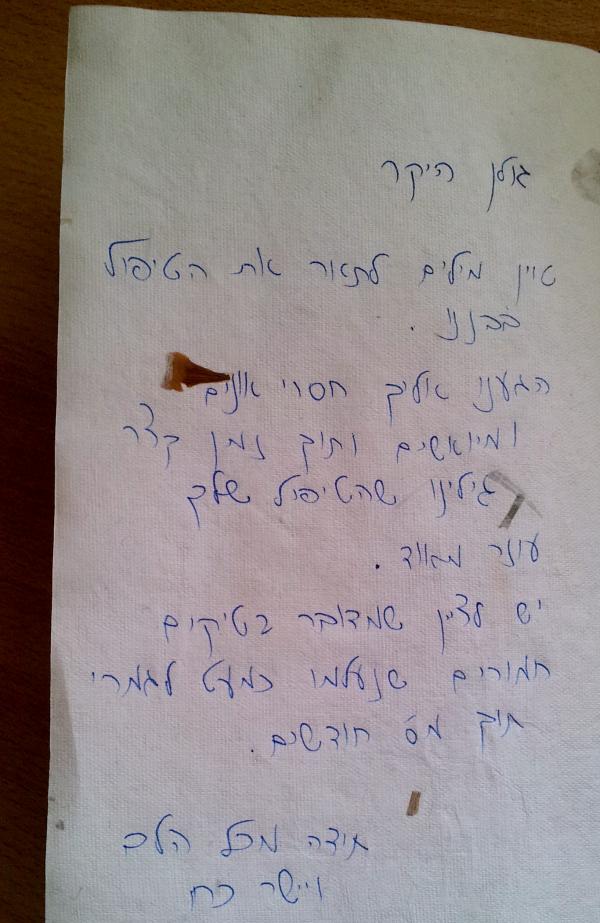 גולן היקר
אין מילים לתאור את הטיפול
בבננו .
הגענו אליך חסרי אונים
ומיואשים ותוך זמן קצר
גילינו שהטיפול שלך
עוזר מאוד .
יש לציין שמדובר בטיקים
חמורים שנעלמו כמעט לגמרי
תוך מס' חודשים .
תודה מכל הלב
ויישר כח